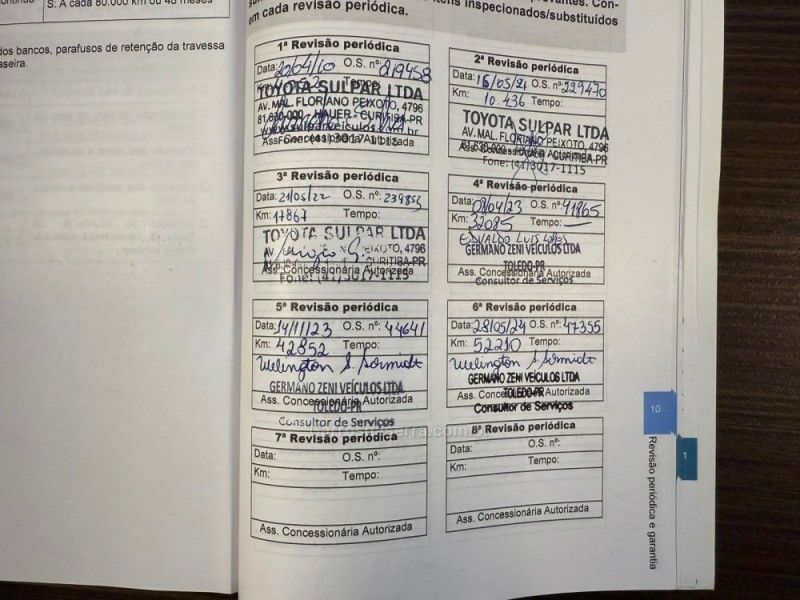 S: A cada 80.000 km ou 48 meses
dos bancos, parafusos de retenção da travessa
aseira.
itens inspecionados/substituídos
em cada revisão periódica.
1ª Revisão periódica
Data: 20/04/10 O.S. nº: 219458
TOYOTA SULPAR LTDA
AV. MAL. FLORIANO PEIXOTO, 4796
81.630-000 - HAUER - CURITIBA-PR
Fone: (41) 3017-1115
2ª Revisão periódica
Data: 15/05/21 O.S. nº: 229470
Km: 10.436 Tempo:
TOYOTA SULPAR LTDA
AV. MAL. FLORIANO PEIXOTO, 4796
81.630-000 CURITIBA-PR
Ass. Concessionária Autorizada
Fone: (41) 3017-1115
3ª Revisão periódica
Data: 21/05/22 O.S. nº: 239853
Km: 17867 Tempo:
TOYOTA SULPAR LTDA
PEIXOTO, 4796
CURITIBA-PR
Ass. Concessionária Autorizada
Fone: (41) 3017-1115
4ª Revisão periódica
Data: 08/04/23 O.S. nº: 41865
Km: 32085 Tempo: —
GERMANO ZENI VEÍCULOS LTDA
TOLEDO-PR
Ass. Concessionária Autorizada
Consultor de Serviços
5ª Revisão periódica
Data: 14/11/23 O.S. nº: 44641
Km: 42852 Tempo:
Welington S. Sormidt
GERMANO ZENI VEÍCULOS LTDA
Ass. Concessionária Autorizada
TOLEDO-PR
Consultor de Serviços
6ª Revisão periódica
Data: 28/05/24 O.S. nº: 47355
Km: 52210 Tempo:
Welington S. Sormidt
GERMANO ZENI VEÍCULOS LTDA
Ass. Concessionária Autorizada
TOLEDO-PR
Consultor de Serviços
7ª Revisão periódica
Data: O.S. nº:
Km: Tempo:
Ass. Concessionária Autorizada
8ª Revisão periódica
Data: O.S. nº:
Km: Tempo:
Ass. Concessionária Autorizada
10
1
Revisão periódica e garantia